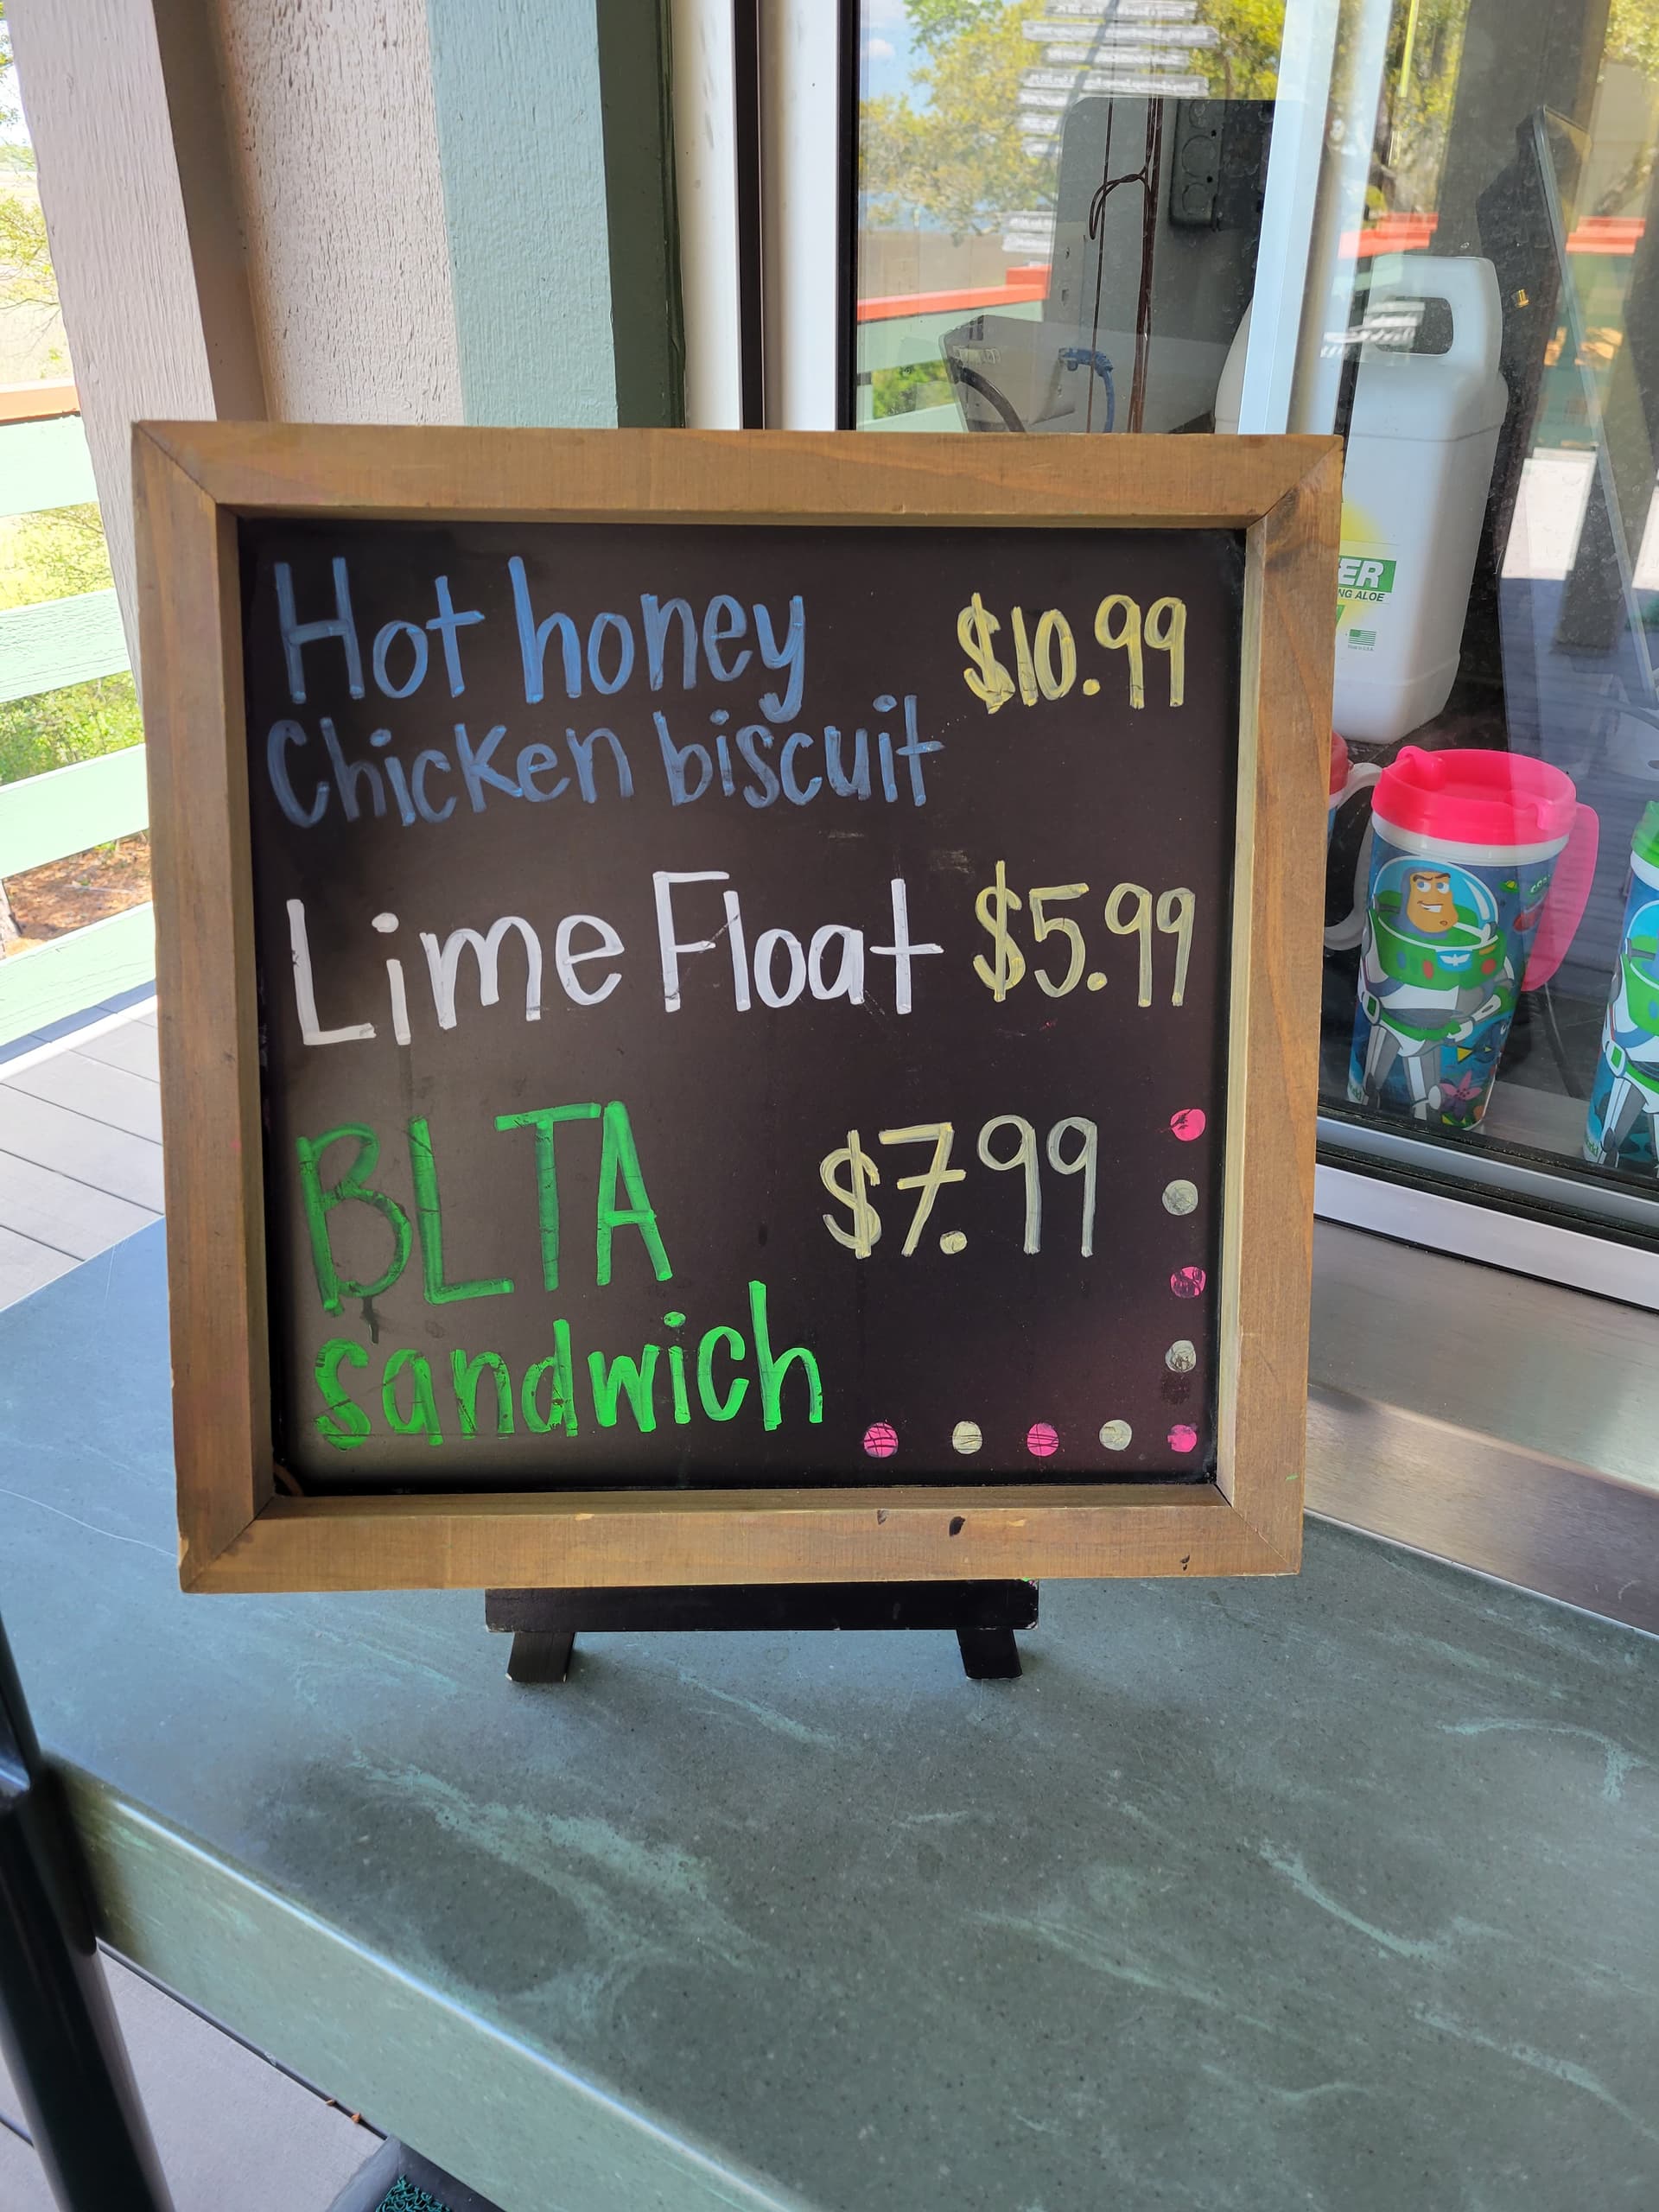 Hot honey $10.99
Chicken biscuit
Lime Float $5.99
BLTA $7.99
sandwich
ER
NG ALOE